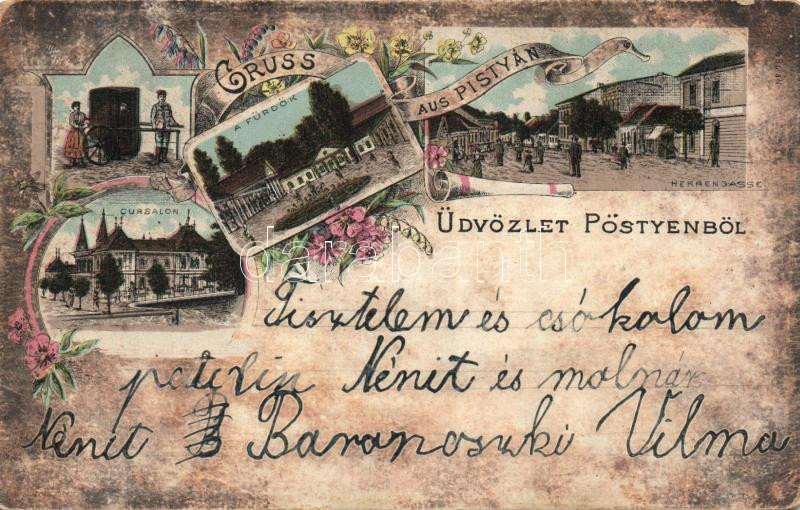 GRUSS AUS PISTYÁN
A FÜRDŐK
HERRENGASSE
CURSALON
ÜDVÖZLET PÖSTYENBŐL
Tisztelem és csókolom
Nénit és molnár
Nénit B Baranoszki Vilma
darabanth